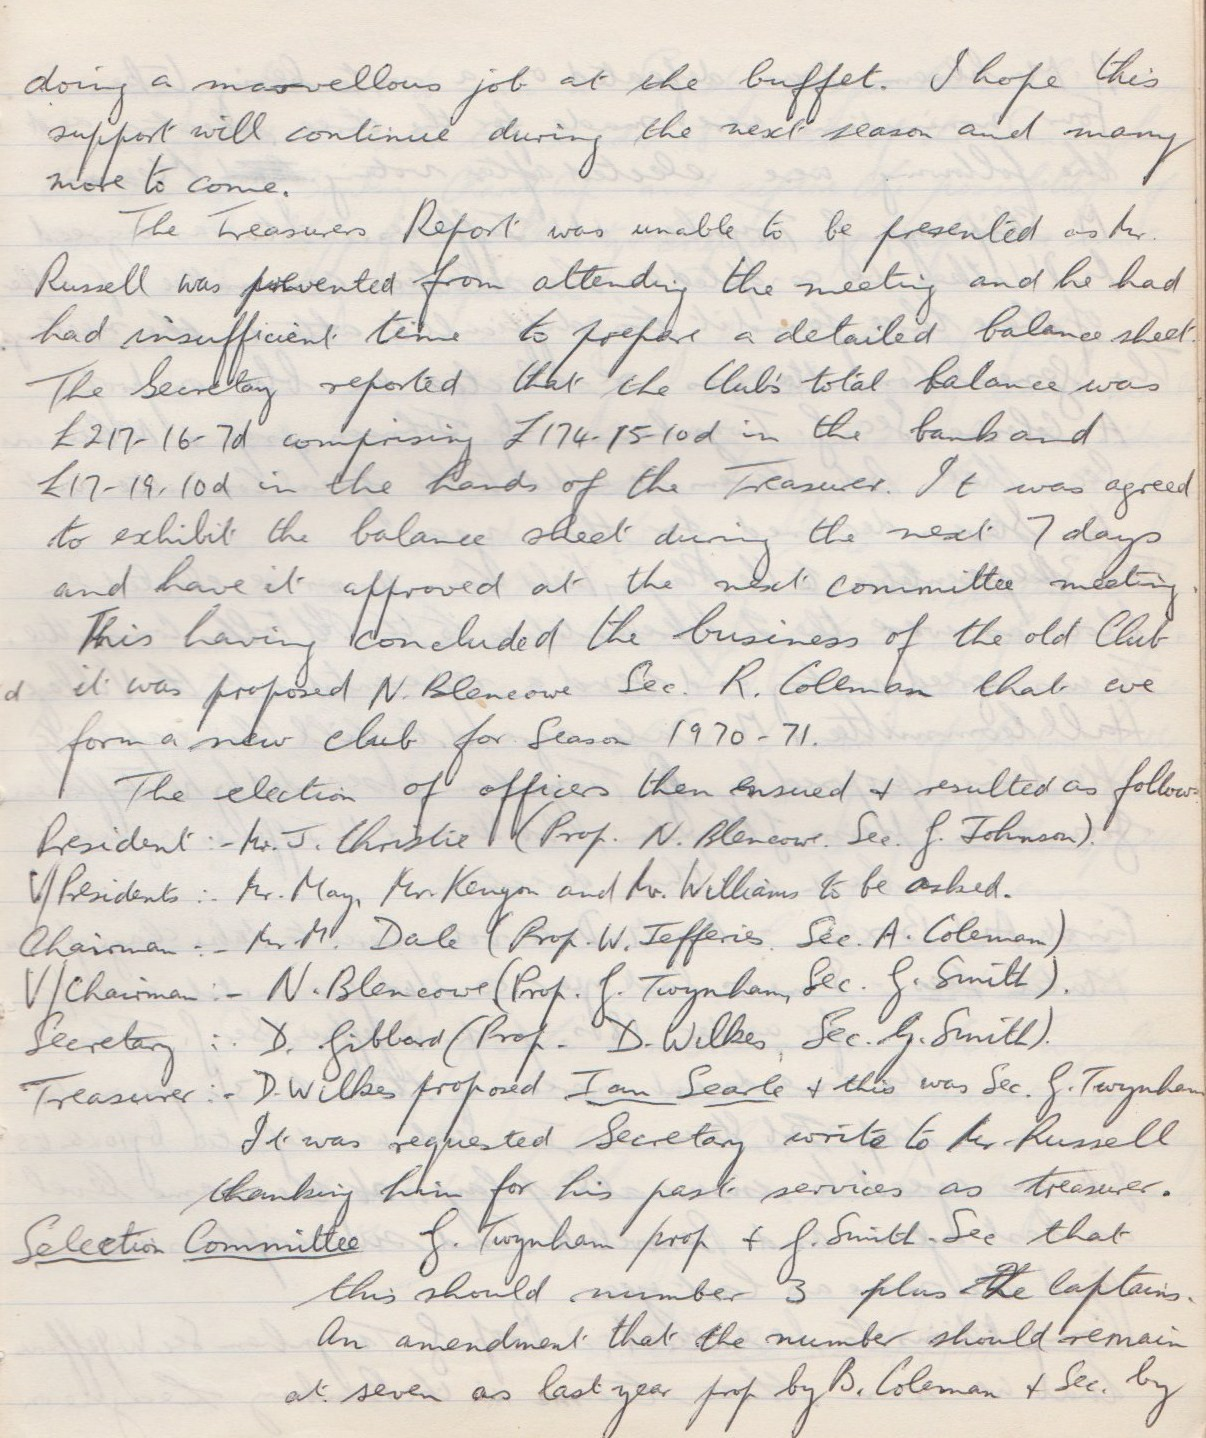 doing a marvellous job at the buffet. I hope this
support will continue during the next season and many
more to come.
The Treasurers Report was unable to be presented as Mr.
Russell was prevented from attending the meeting and he had
had insufficient time to prepare a detailed balance sheet.
The Secretary reported that the Club's total balance was
£217-16-7d comprising £174-15-10d in the bank and
£17-19-10d in the hands of the Treasurer. It was agreed
to exhibit the balance sheet during the next 7 days
and have it approved at the next committee meeting.
This having concluded the business of the old Club
it was proposed N. Blencowe Sec. R. Coleman that we
form a new club for Season 1970-71.
The election of officers then ensued + resulted as follows
President :- Mr. J. Christie (Prop. N. Blencowe. Sec. G. Johnson).
V/Presidents :- Mr. May, Mr. Kenyon and Mr. Williams to be asked.
Chairman :- Mr. M. Dale (Prop. W. Jefferies. Sec. A. Coleman)
V/Chairman :- N. Blencowe (Prop. G. Twynham, Sec. G. Smith).
Secretary :- D. Gibbard (Prop. D. Wilkes, Sec. G. Smith).
Treasurer :- D. Wilkes proposed Ian Searle + this was Sec. G. Twynham
It was requested Secretary write to Mr Russell
thanking him for his past services as treasurer.
Selection Committee G. Twynham prop + G. Smith. Sec that
this should number 3 plus the Captains.
An amendment that the number should remain
at seven as last year prop by B. Coleman + Sec. by